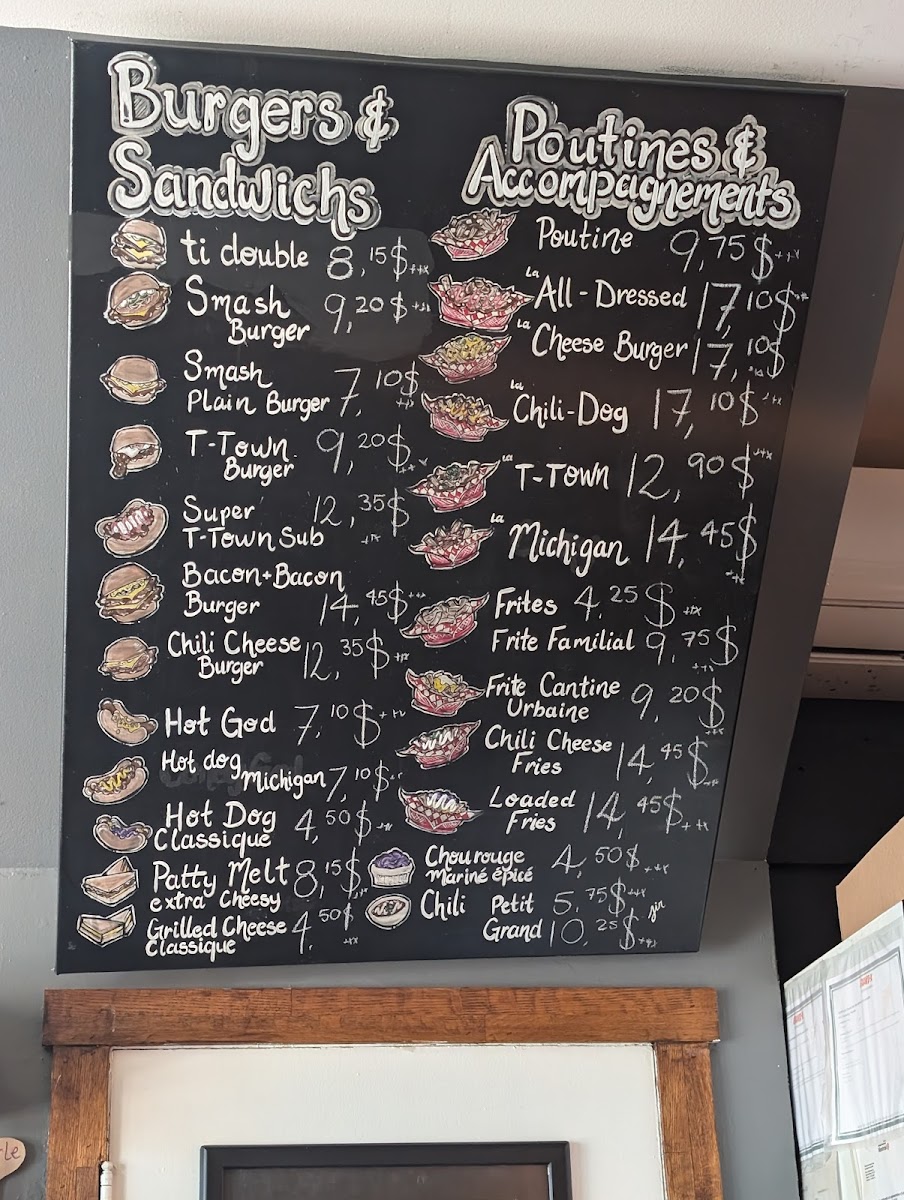 Burgers &
Sandwichs
ti double 8,15$ +tx
Smash 9,20$ +tx
Burger
Smash 7,10$ +tx
Plain Burger
T-Town 9,20$ +tx
Burger
Super 12,35$ +tx
T-Town Sub
Bacon+Bacon
Burger 14,45$ +tx
Chili Cheese 12,35$ +tx
Burger
Hot God 7,10$ +tx
Hot dog
Michigan 7,10$ +tx
Hot Dog 4,50$ +tx
Classique
Patty Melt 8,15$ +tx
extra Cheesy
Grilled Cheese 4,50$ +tx
Classique
Poutines &
Accompagnements
Poutine 9,75$ +tx
La All-Dressed 17,10$ +tx
La Cheese Burger 17,10$ +tx
La Chili-Dog 17,10$ +tx
La T-Town 12,90$ +tx
La Michigan 14,45$ +tx
Frites 4,25$ +tx
Frite Familial 9,75$ +tx
Frite Cantine 9,20$ +tx
Urbaine
Chili Cheese 14,45$ +tx
Fries
Loaded 14,45$ +tx
Fries
Chou rouge 4,50$ +tx
Mariné épicé
Chili Petit 5,75$ +tx
Grand 10,25$ +tx